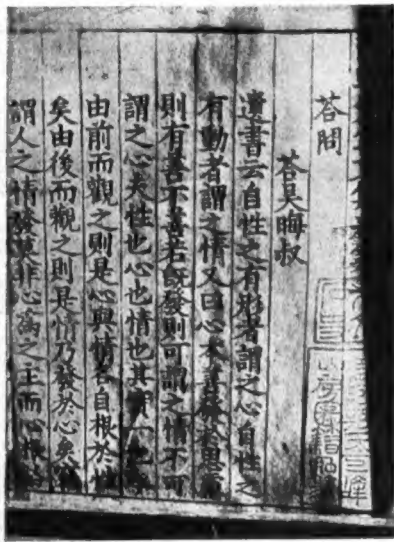 答問
答吳晦叔
遺書云自性之有形者謂之心自性之
有動者謂之情又曰心本善發於思慮
則有善不善若既發則可謂之情不可
謂之心夫性也心也情也其實一也
由前而觀之則是心與情各自根於性
矣由後而觀之則是情乃發於心矣
謂人之情發莫非心為之主而心根